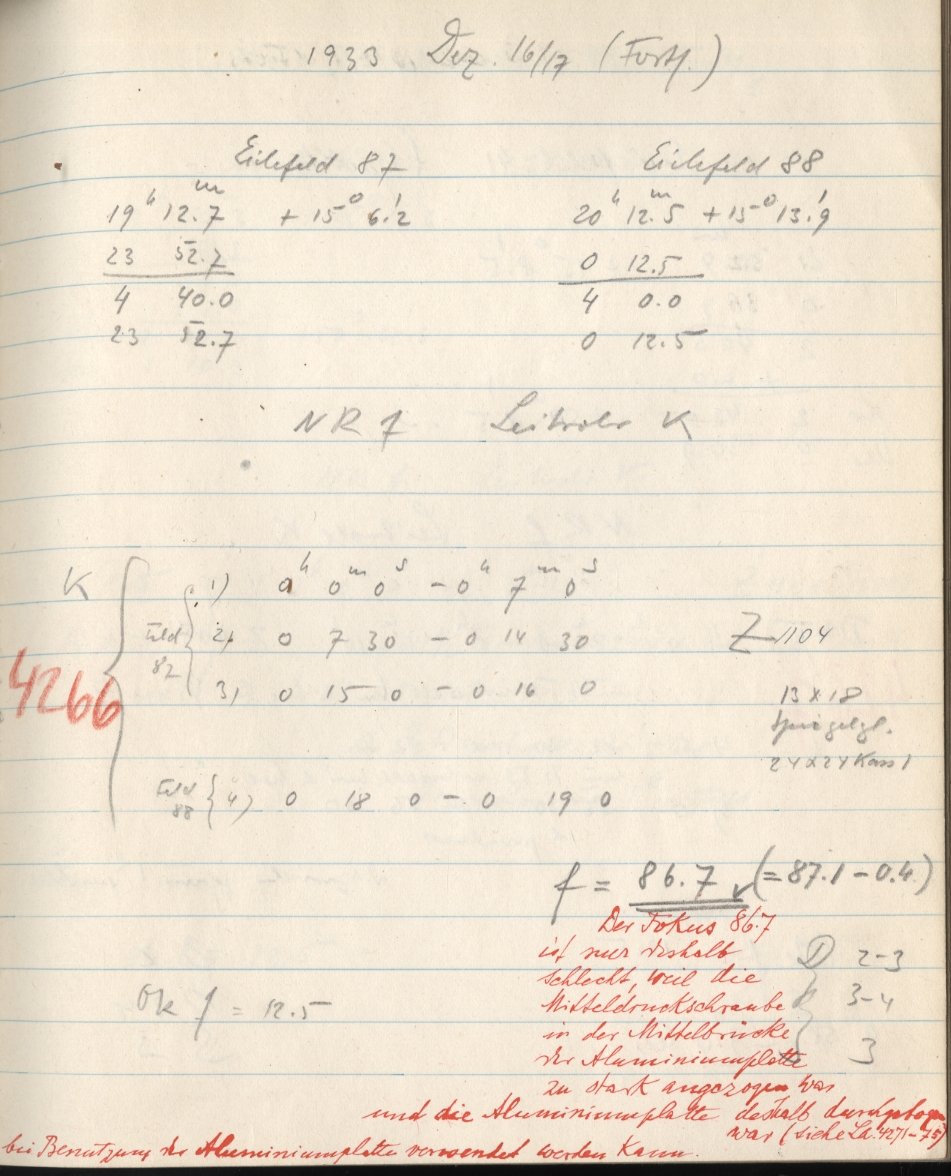 1933 Dez. 16/17 (Forts.)
Eichfeld 87 Eichfeld 88
19ʰ 12.ᵐ7 + 15° 6.'2 20ʰ 12.ᵐ5 + 15° 13.'9
23 52.7 0 12.5
4 40.0 4 0.0
23 52.7 0 12.5
NR f Leitrohr K
K 1) 0ʰ 0ᵐ 0ˢ - 0ʰ 7ᵐ 0ˢ
Feld 82 2) 0 7 30 - 0 14 30 Z 1104
4266 3) 0 15 0 - 0 16 0 13 x 18
Spiegelgl.
24 x 24 Kass 1
Feld 88 4) 0 18 0 - 0 19 0
f = 86.7 (= 87.1 - 0.4)
Der Fokus 86.7
ist nur deshalb 2-3
schlecht, weil die
Mitteldruckschraube 3-4
Ok f = 12.5
in der Mittelbrücke
der Aluminiumplatte 3
zu stark angezogen war
und die Aluminiumplatte deshalb durchgebogen
war (siehe La. 4271-75)
bei Benutzung der Aluminiumplatte verwendet werden kann.